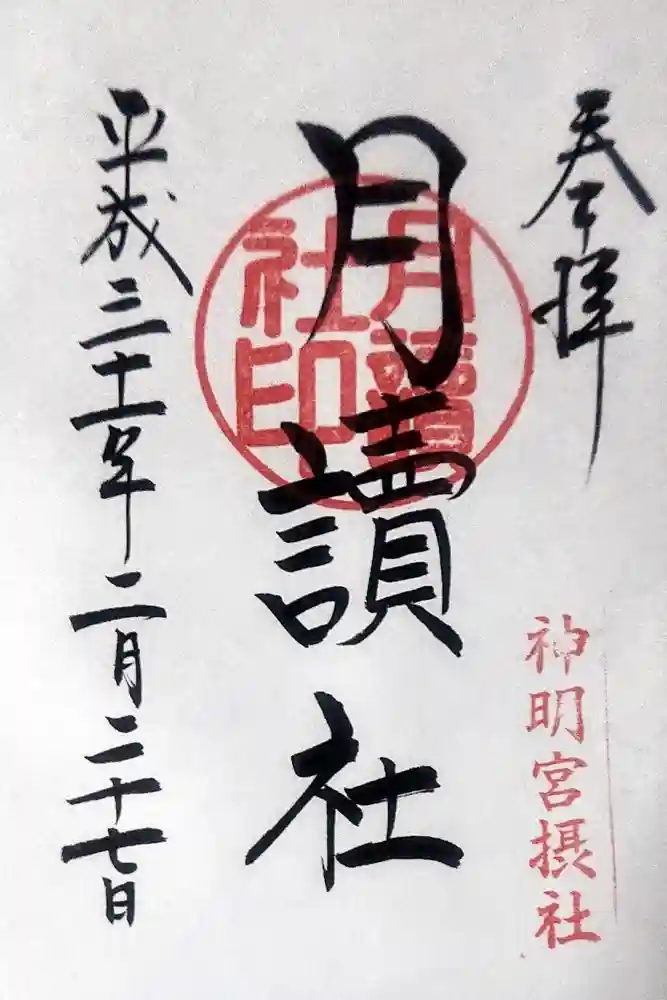 奉拝
神明宮摂社
月讀社
月讀
社印
平成三十一年二月二十七日